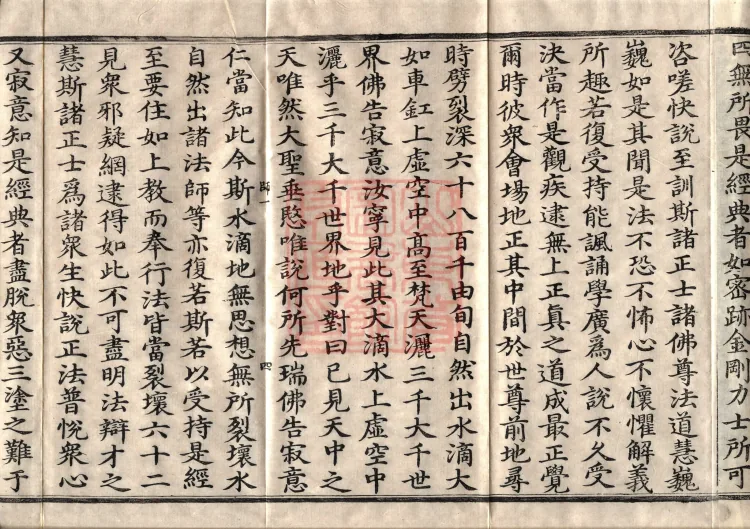 四無所畏是經典者如密跡金剛力士所可
咨嗟快說至訓斯諸正士諸佛尊法道慧巍
巍如是其聞是法不恐不怖心不懷懼解義
所趣若復受持能諷誦學廣爲人說不久受
決當作是觀疾逮無上正真之道成最正覺
爾時彼衆會場地正其中間於世尊前地尋
時劈裂深六十八百千由旬自然出水滴大
如車釭上虛空中髙至梵天灑三千大千世
界佛告寂意汝寧見此其大滴水上虛空中
灑乎三千大千世界地乎對曰已見天中之
天唯然大聖垂愍唯說何所先瑞佛告寂意
仁當知此今斯水滴地無思想無所裂壞水
自然出諸法師等亦復若斯若以受持是經
至要住如上教而奉行法皆當裂壞六十二
見衆邪疑網逮得如此不可盡明法辯才之
慧斯諸正士爲諸衆生快說正法普悅衆心
又寂意知是經典者盡脫衆惡三塗之難于
四